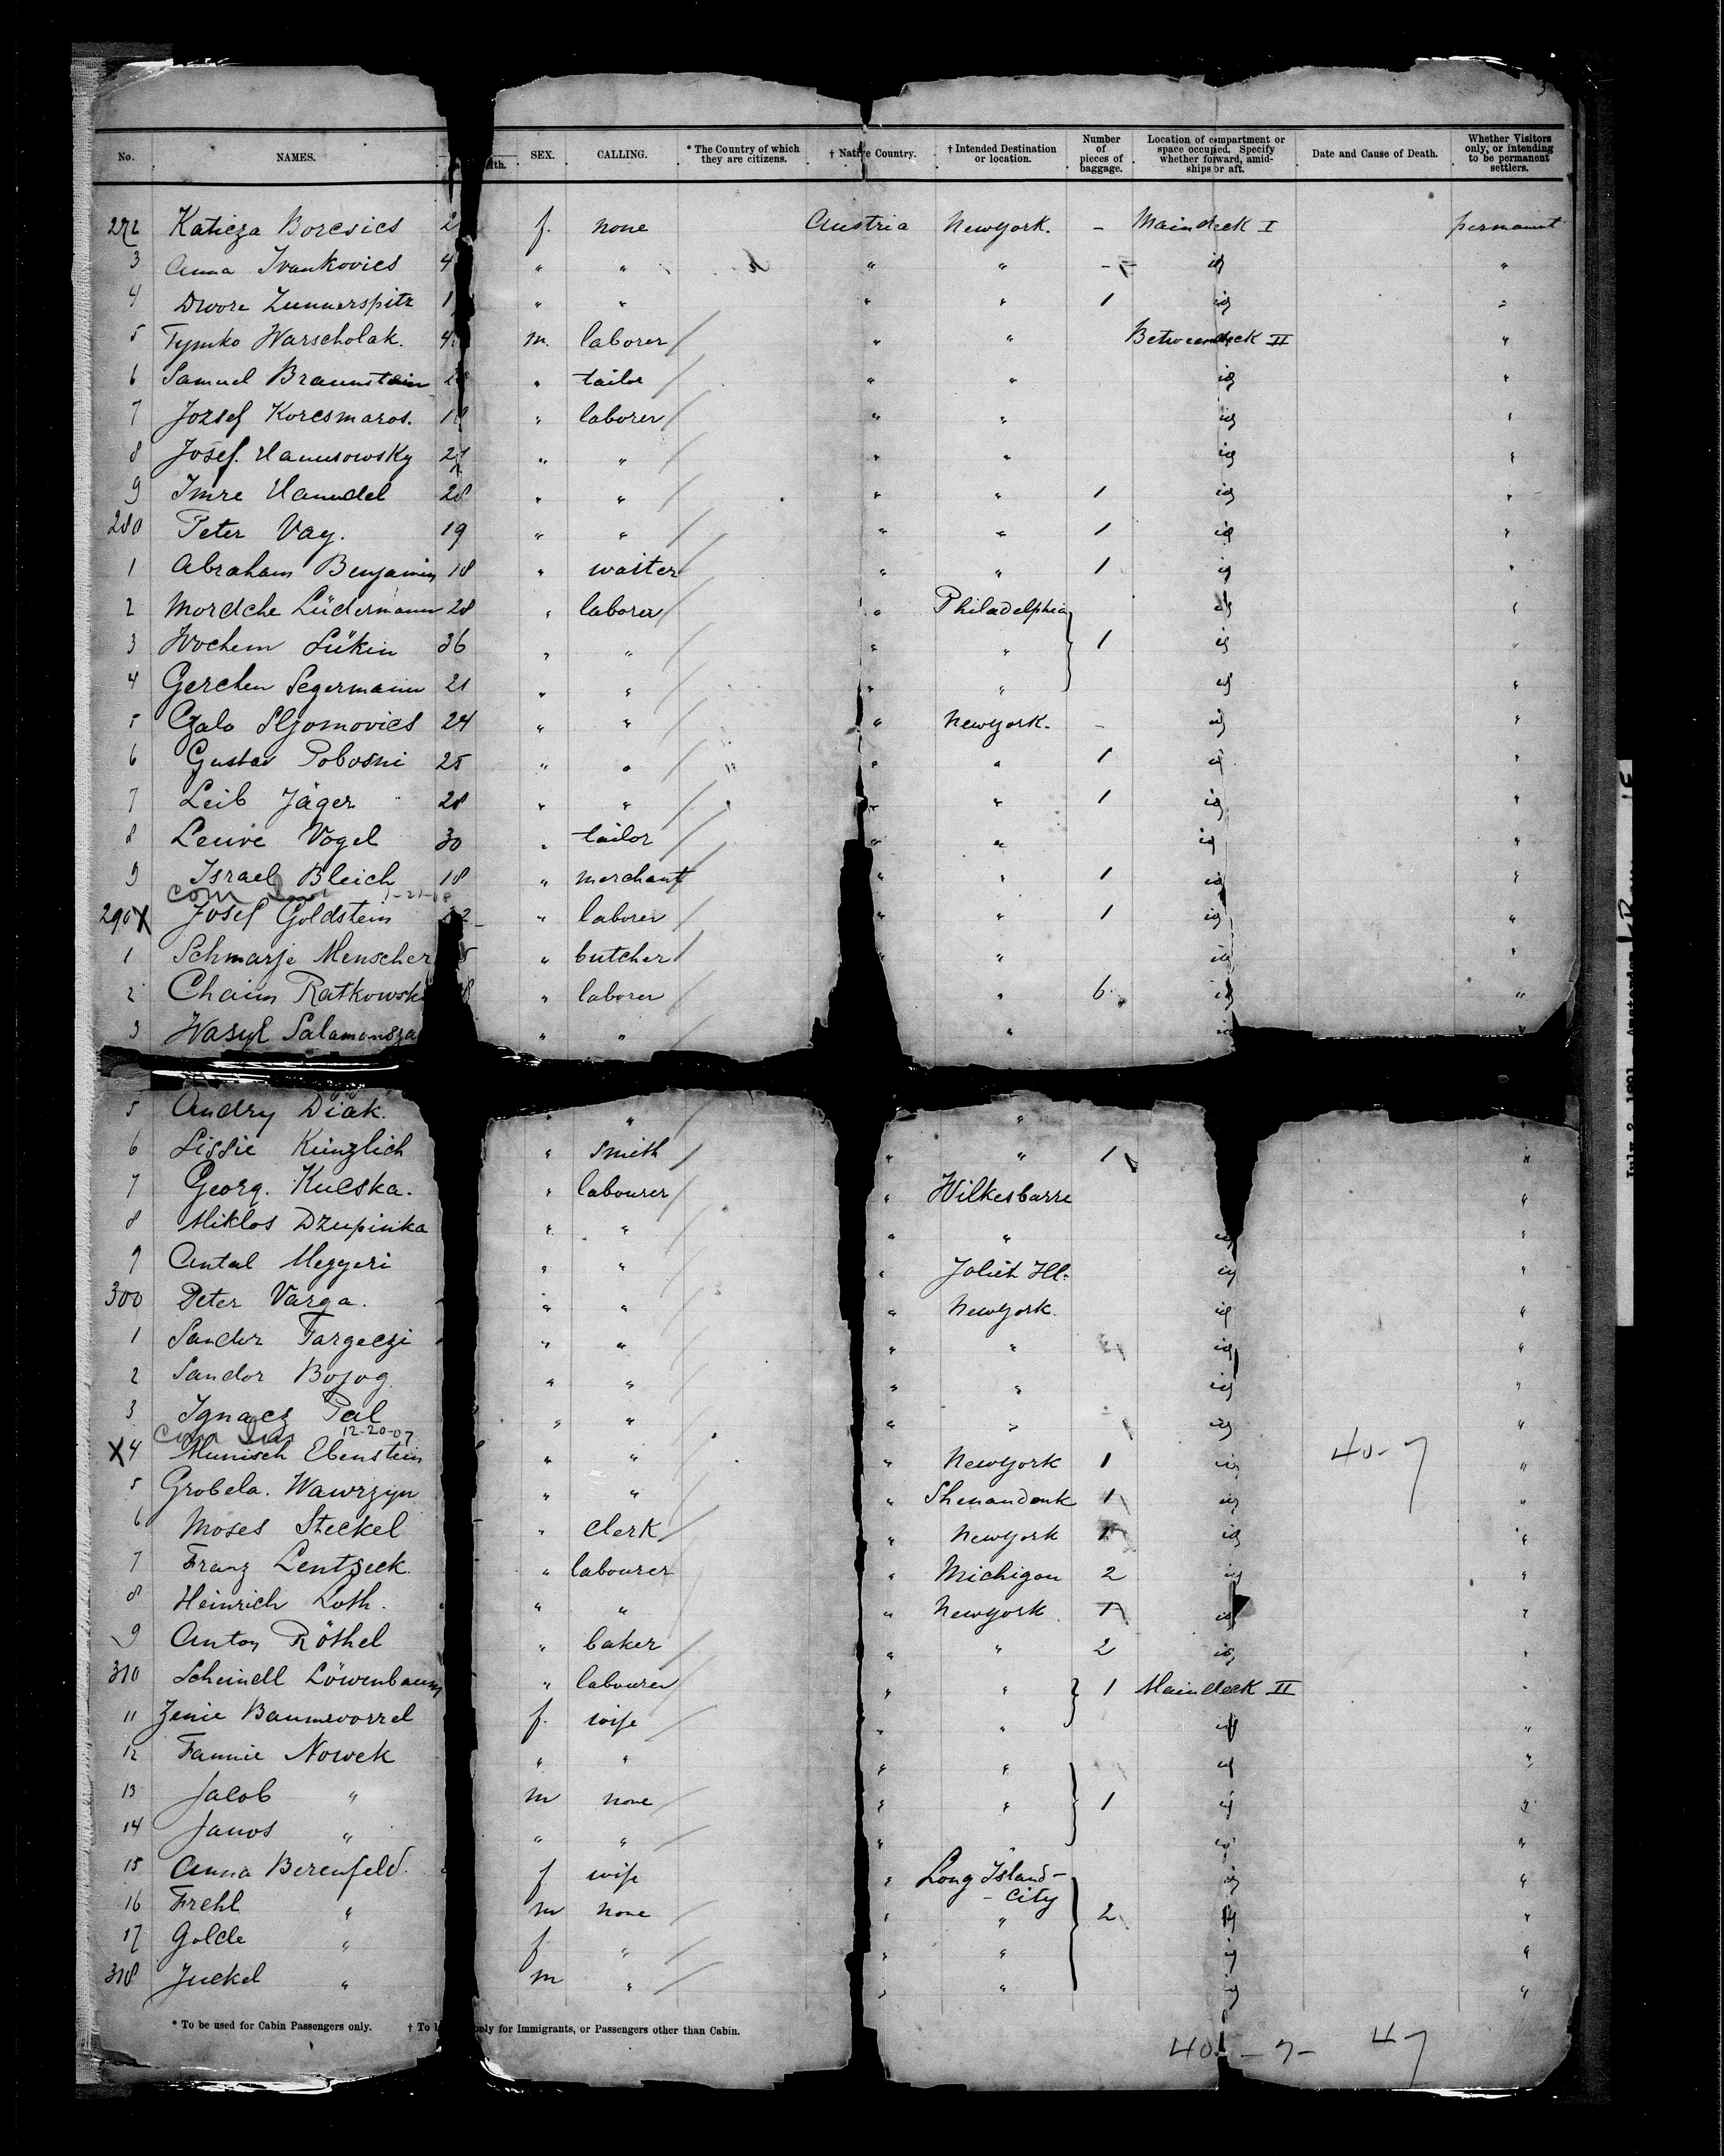 3
No. NAMES. lth. SEX. CALLING. * The Country of which they are citizens. † Native Country. † Intended Destination or location. Number of pieces of baggage. Location of compartment or space occupied. Specify whether forward, amid-ships or aft. Date and Cause of Death. Whether Visitors only, or intending to be permanent settlers.
272 Katicza Borcsics 2 f. none Austria Newyork. – Maindeck I permanent
3 Anna Ivankovics 4 " " " " – id "
4 Dwore Zunnerspitz 1 " " " " 1 id "
5 Tymko Warscholak. 4 m. laborer " " Betweendeck II "
6 Samuel Braunstein 2 " tailor " " id "
7 Jozsef Korcsmaros. 18 " laborer " " id "
8 Josef. Hanusowsky 27 " " " " id "
9 Imre Hamdel 28 " " " " 1 id "
280 Peter Vay. 19 " " " " 1 id "
1 Abraham Benjamin 18 " waiter " " 1 id "
2 Mordche Lüdermann 28 " laborer " Philadelphia id "
3 Wochem Lükin 36 " " " " 1 id "
4 Gerchen Segermann 21 " " " " id "
5 Czalo Slzomovics 24 " " " Newyork. – id "
6 Gustav Pobosni 25 " " " " 1 id "
7 Leib Jäger 28 " " " " 1 id "
8 Leuve Vogel 30 " tailor " " id "
9 Israel Bleich 18 " merchant " " 1 id "
290 X Josef Goldstein 2 " laborer " " 1 id "
1 Schmarje Menscher 5 " butcher " " id "
2 Chaim Ratkowsk 8 " laborer " 6 id "
3 Wasyl Salamonsza " " " id "
5 Andry Diak. " " " "
6 Lissie Künzlich " smith " " 1 "
7 Georg. Kucska. " labourer " Wilkesbarre "
8 Miklos Dzupinka " " " " id "
9 Antal Meggeri " " " Joliet Ill. id "
300 Peter Varga. " " " Newyork. id "
1 Sandor Targeczi " " " " id "
2 Sandor Bojog " " " " id "
3 Ignacz Pal " " " " id "
12-20-07
X 4 Munisch Ebenstein " " " Newyork 1 id 40-7 "
5 Grobela. Wawrzyn " " " Shenandoak 1 id "
6 Moses Steckel " clerk " Newyork 1 id "
7 Franz Lentzeck. " labourer " Michigan 2 id "
8 Heinrich Loth. " " " Newyork 1 id "
9 Anton Röthel " baker " " 2 id "
310 Scheindl Löwenbaum " labourer " " 1 Maindeck II "
11 Zenie Baumworzel f. wife " " id "
12 Fannie Nowek " " " " id "
13 Jacob " m none " " 1 id "
14 Janos " " " " " id "
15 Anna Berenfeld. f wife " Long Island- -City id "
16 Frehl " m none " " 2 id "
17 Golde " f " " " id "
318 Juckel " m " " " id "
* To be used for Cabin Passengers only. † To b only for Immigrants, or Passengers other than Cabin.
40 - 7 - 47